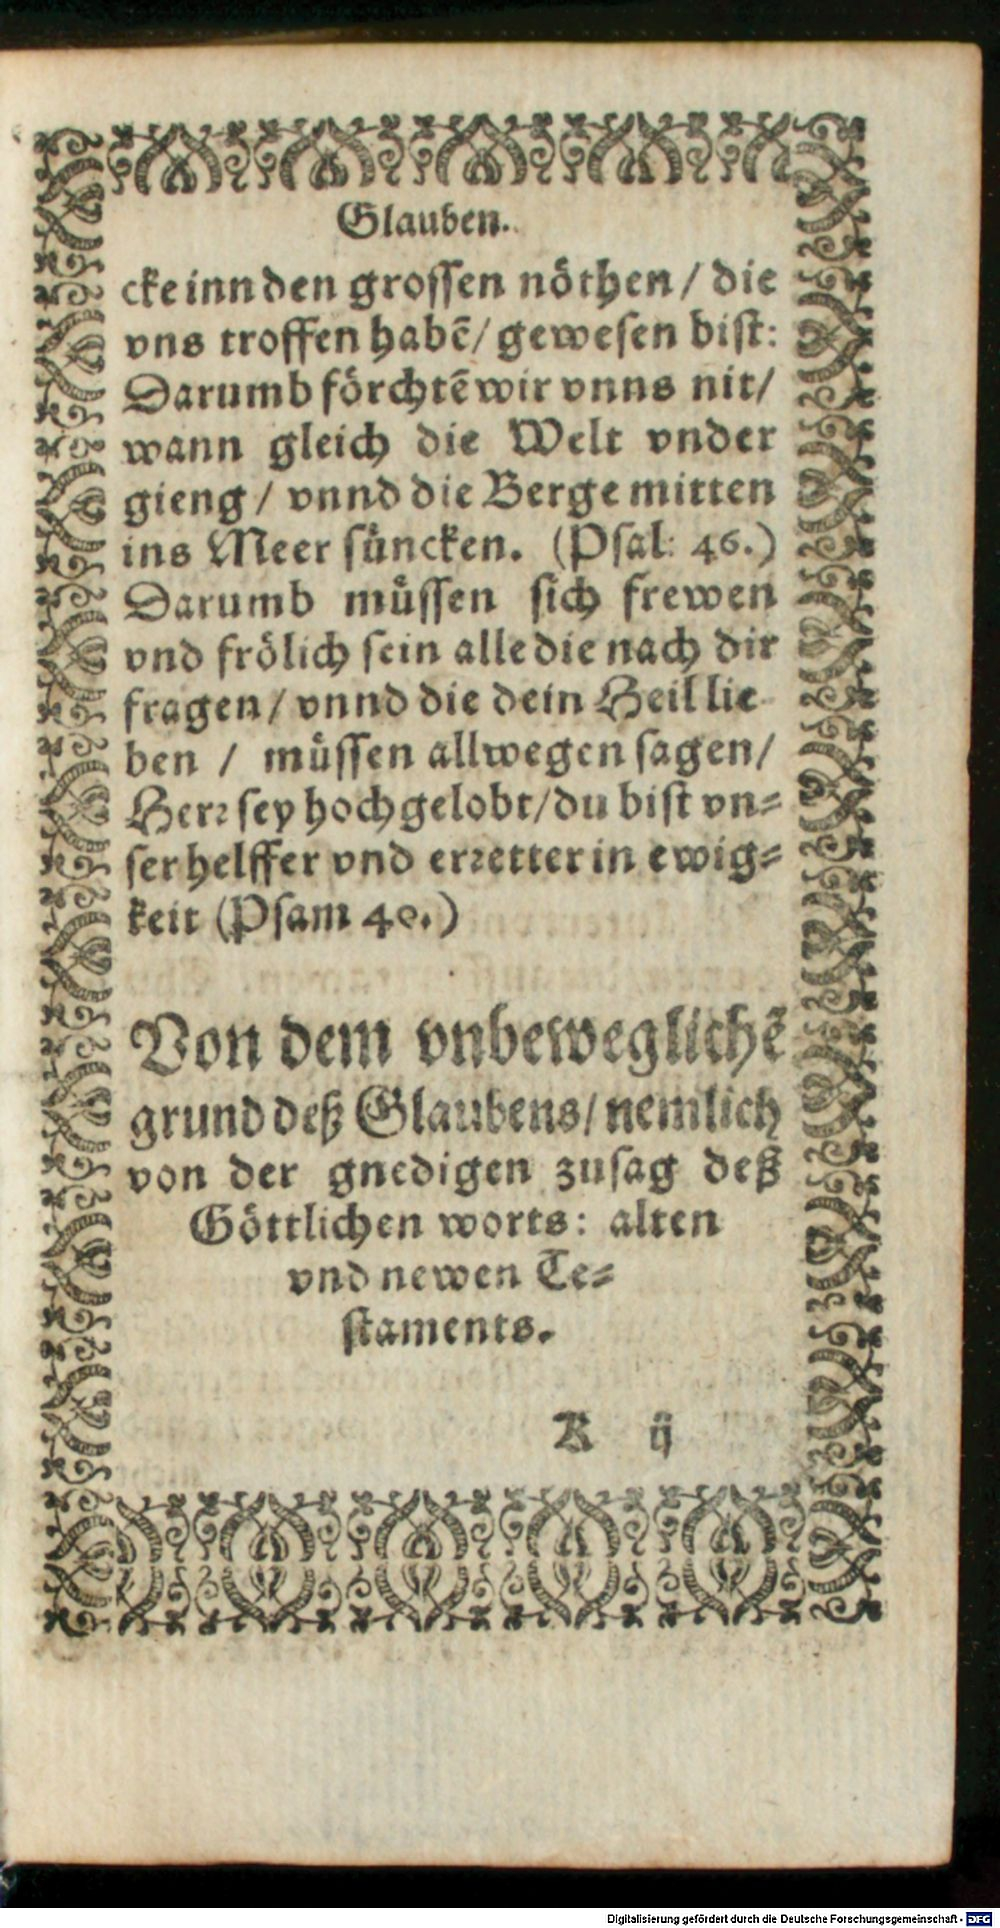 Glauben.
cke inn den grossen nöthen / die
vns troffen habẽ / gewesen bist:
Darumb förchtẽ wir vnns nit /
wann gleich die Welt vnder
gieng / vnnd die Berge mitten
ins Meer süncken. (Psal: 46.)
Darumb müssen sich frewen
vnd frölich sein alle die nach dir
fragen / vnnd die dein Heil lie-
ben / müssen allwegen sagen /
Herr sey hoch gelobt / du bist vn-
ser helffer vnd erretter in ewig-
keit (Psam 40.)
Von dem vnbeweglichẽ
grund deß Glaubens / nemlich
von der gnedigen zusag deß
Göttlichen worts: alten
vnd newen Te-
staments.
K ij
Digitalisierung gefördert durch die Deutsche Forschungsgemeinschaft - DFG